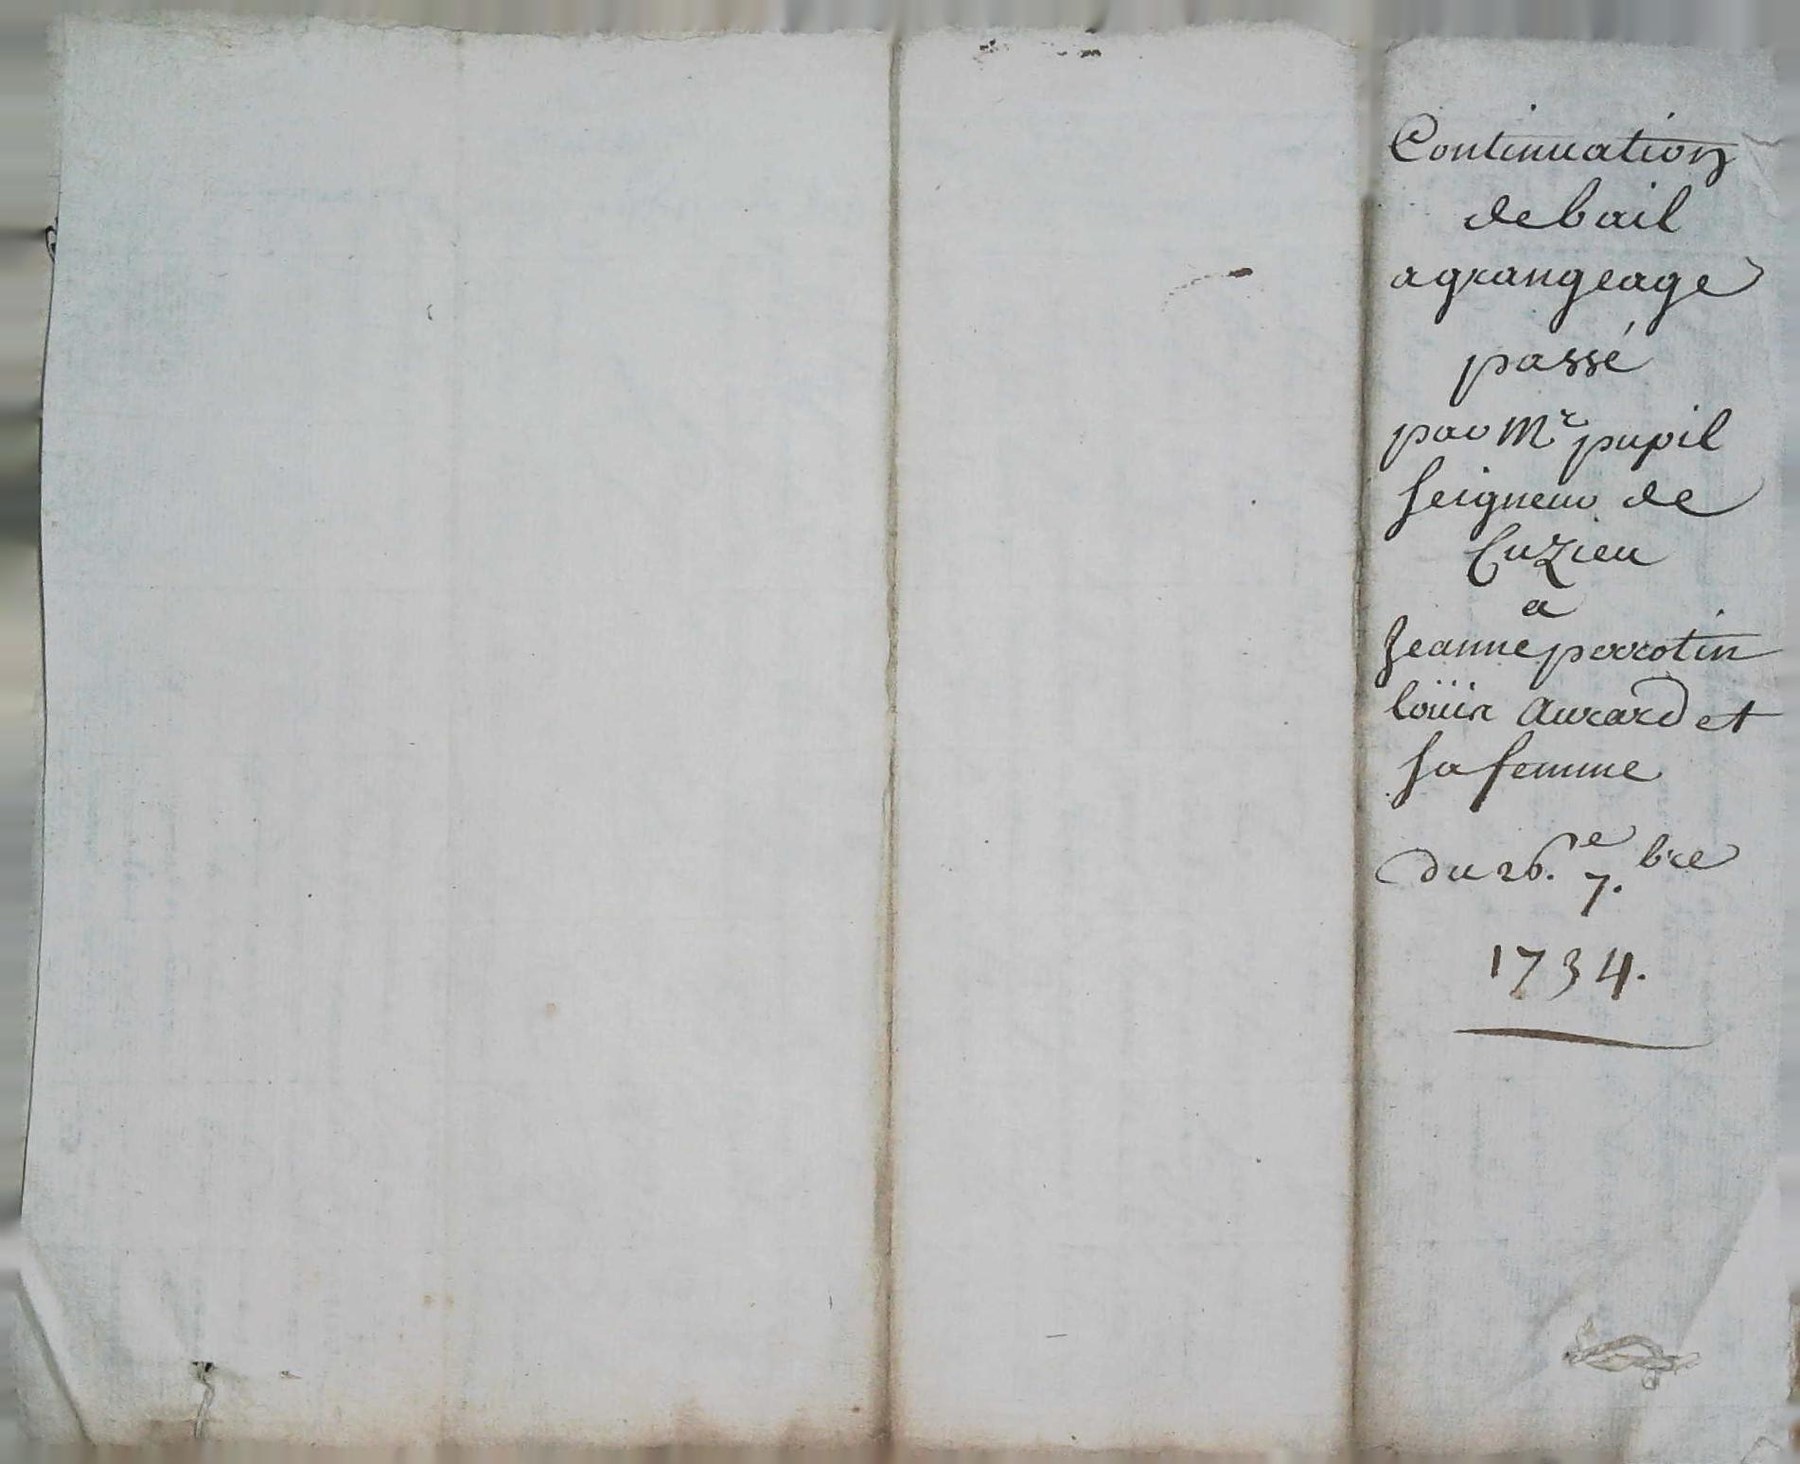 Continuation
de bail
a grangeage
passé
par Mr pupil
seigneur de
Cuzieu
a
Jeanne perrotin
loüis Aurard et
sa femme
du 26.e 7.bre
1734.